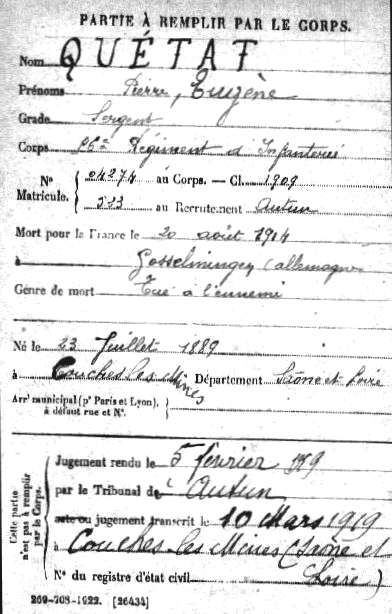 PARTIE À REMPLIR PAR LE CORPS.
Nom QUÉTAT
Prénoms Pierre, Eugène
Grade Sergent
Corps Régiment d'Infanterie
N° Matricule. { 04274 au Corps. — Cl. 1909
513 au Recrutement Autun
Mort pour la France le 20 août 1914
à Gosselmingen (allemagne)
Genre de mort Tué à l'ennemi
Né le 23 Juillet 1889
à Couches les Mines Département Saône et Loire
Arr^t municipal (p^r Paris et Lyon), à défaut rue et N°. {
Cette partie n'est pas à remplir par le Corps.
Jugement rendu le 5 février 1919
par le Tribunal de Autun
acte ou jugement transcrit le 10 Mars 1919
à Couches les Mines (Saône et
N° du registre d'état civil Loire)
269-708-1922. [26434]